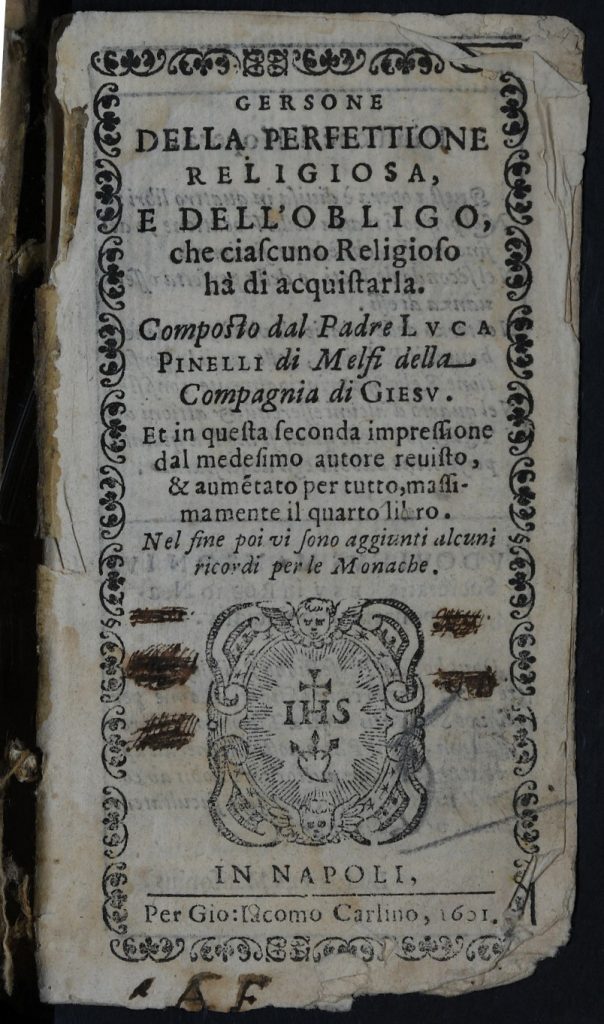 GERSONE
DELLA PERFETTIONE
RELIGIOSA,
E DELL'OBLIGO,
che ciaſcuno Religioſo
hà di acquiſtarla.
Compoſto dal Padre LVCA
PINELLI di Melfi della
Compagnia di GIESV.
Et in queſta ſeconda impreſſione
dal medeſimo autore reuiſto,
& aumẽtato per tutto, maſſi-
mamente il quarto libro.
Nel fine poi vi ſono aggiunti alcuni
ricordi per le Monache.
IHS
IN NAPOLI,
Per Gio: Iacomo Carlino, 1601.
A F